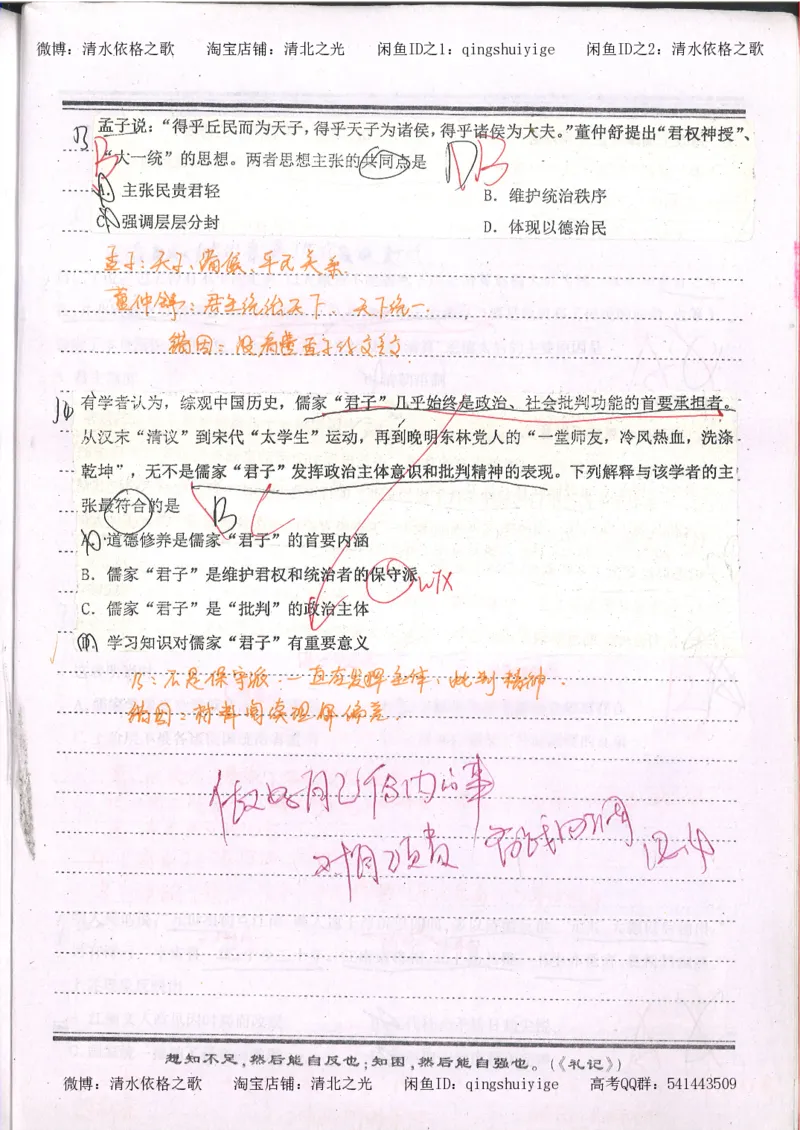 微博：清水依格之歌 淘宝店铺：清北之光 闲鱼ID之1：qingshuiyige 闲鱼ID之2：清水依格之歌
13 孟子说：“得乎丘民而为天子，得乎天子为诸侯，得乎诸侯为大夫。”董仲舒提出“君权神授”、
B “大一统”的思想。两者思想主张的共同点是 D B
A. 主张民贵君轻 B. 维护统治秩序
C. 强调层层分封 D. 体现以德治民
孟子：天子、诸侯、平民关系.
董仲舒：君主统治天下、天下统一.
错因：没看懂孟子作文言文
14 有学者认为，综观中国历史，儒家“君子”几乎始终是政治、社会批判功能的首要承担者。
从汉末“清议”到宋代“太学生”运动，再到晚明东林党人的“一堂师友，冷风热血，洗涤
乾坤”，无不是儒家“君子”发挥政治主体意识和批判精神的表现。下列解释与该学者的主
张最符合的是 B C
A. 道德修养是儒家“君子”的首要内涵
B. 儒家“君子”是维护君权和统治者的保守派
C. 儒家“君子”是“批判”的政治主体
D. 学习知识对儒家“君子”有重要意义
B：不是保守派.一直在发挥主体，批判精神.
错因：材料阅读理解偏差.
做好自己份内的事
对自己负责
想知不足，然后能自反也；知困，然后能自强也。（《礼记》）
微博：清水依格之歌 淘宝店铺：清北之光 闲鱼ID：qingshuiyige 高考QQ群：541443509